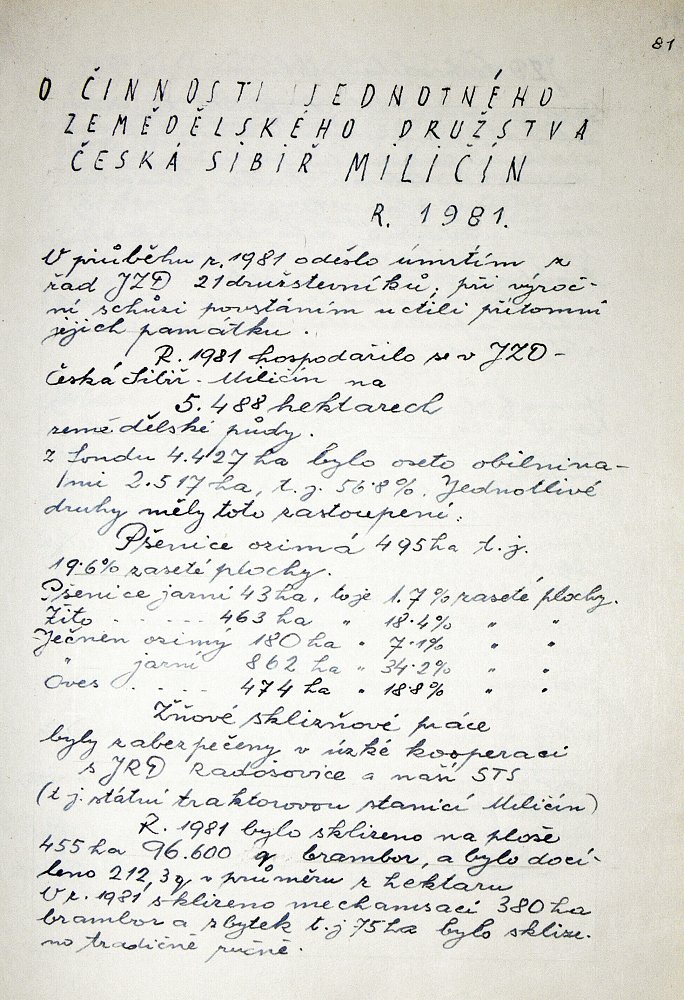 81
O ČINNOSTI JEDNOTNÉHO
ZEMĚDĚLSKÉHO DRUŽSTVA
ČESKÁ SIBIŘ MILIČÍN
R. 1981.
V průběhu r. 1981 odešlo úmrtím z
řad JZD 21 družstevníků; při výroč-
ní schůzi povstáním uctili přítomní
jejich památku.
R. 1981 hospodařilo se v JZD -
Česká Sibiř - Miličín na
5.488 hektarech
zemědělské půdy.
Z fondu 4.427 ha bylo oseto obilnina-
mi 2.517 ha, t.j. 56.8%. Jednotlivé
druhy měly toto zastoupení:
Pšenice ozimá 495 ha t.j.
19.6% zaseté plochy.
Pšenice jarní 43 ha, to je 1.7% zaseté plochy.
Žito . - - - - - . 463 ha " 18.4% " "
Ječmen ozimý 180 ha " 7.1% " "
" jarní 862 ha " 34.2% " "
Oves . . - - . 474 ha " 18.8% " "
Žňové sklizňové práce
byly zabezpečeny v úzké kooperaci
s JRD Radošovice a naší STS
(t.j. státní traktorovou stanicí Miličín)
R. 1981 bylo sklizeno na ploše
455 ha 96.600 q brambor, a bylo docí-
leno 212,3 q v průměru z hektaru
V r. 1981 sklizeno mechanisací 380 ha
brambor a zbytek t.j. 75 ha bylo sklize-
no tradičně ručně.